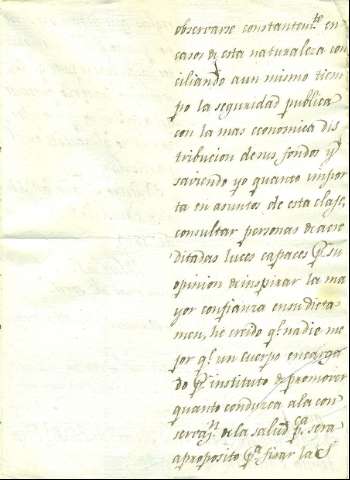 observarse constantem.te en
casos de esta naturaleza con
ciliando aun mismo tiem
po la seguridad publica
con la mas economica dis
tribucion de sus fondos y
saviendo yo quanto impor
ta en asuntos de esta clase,
consultar personas de acre
ditadas luces capaces p.r su
opinion de inspirar la ma
yor confianza en su dicta
men, he creido q.e nadie me
jor q.e un cuerpo encarga
do p.r instituto de promover
quanto conduzca a la con
serv.on de la salud p.ca sera
aproposito p.a fixar la